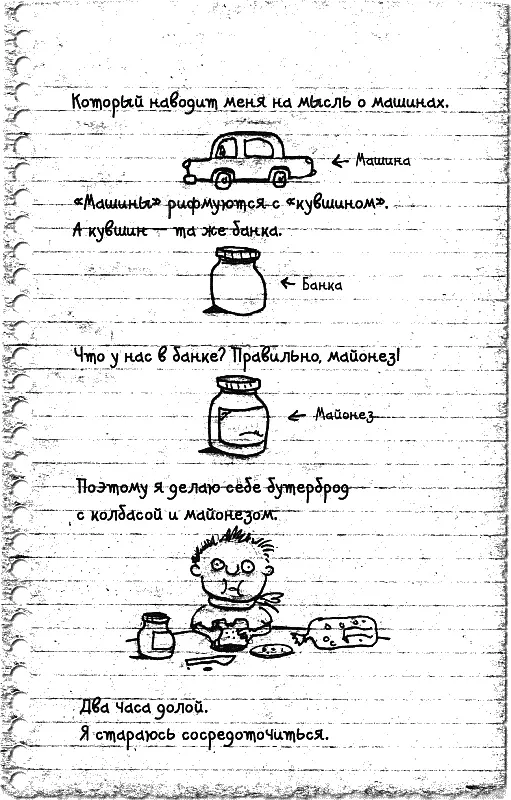 Который наводит меня на мысль о машинах.
← Машина
«Машины» рифмуются с «кувшином».
А кувшин — та же банка.
← Банка
Что у нас в банке? Правильно, майонез!
← Майонез
Поэтому я делаю себе бутерброд
с колбасой и майонезом.
Два часа долой.
Я стараюсь сосредоточиться.